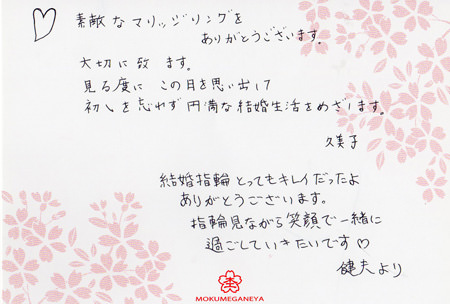 素敵なマリッジリングを
ありがとうございます。
大切に致 ます。
見る度に この日を思い出して
初心を忘れず 円満な結婚生活をめざします。
久美子
結婚指輪とってもキレイだったよ
ありがとうございます。
指輪見ながら笑顔で一緒に
過ごしていきたいです♡
健夫より
MOKUMEGANEYA